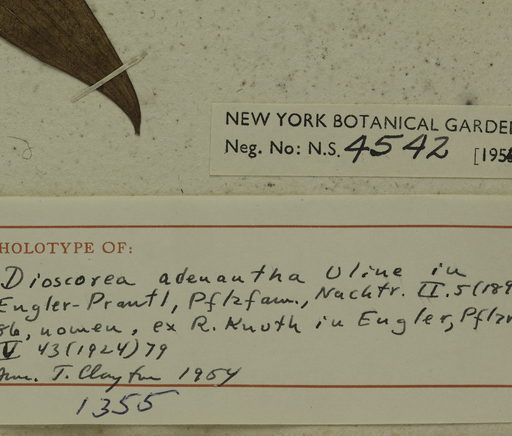 NEW YORK BOTANICAL GARDE
Neg. No: N.S. 4542 [195
HOLOTYPE OF:
Dioscorea adenantha Uline in
Engler-Prantl, Pflzfam., Nachtr. II.5(189
86, nomen, ex R. Knuth in Engler, Pflzr
IV 43(1924)79
T. Clayton 1954
1355